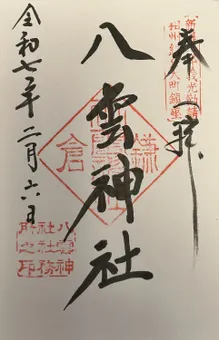 奉拝
八雲神社
鎌倉
令和七年二月六日
八雲神
社社務
所之印